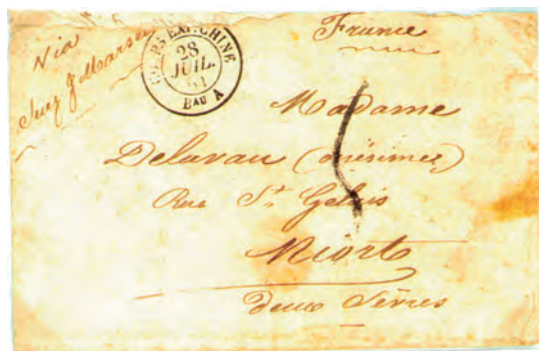 Via
Suez & Marse
France
CORPS EXP. CHINE
28
JUIL.
61
BAU A
Madame
Delavau (onésime)
Rue St Gelais
Niort
Deux Sèvres